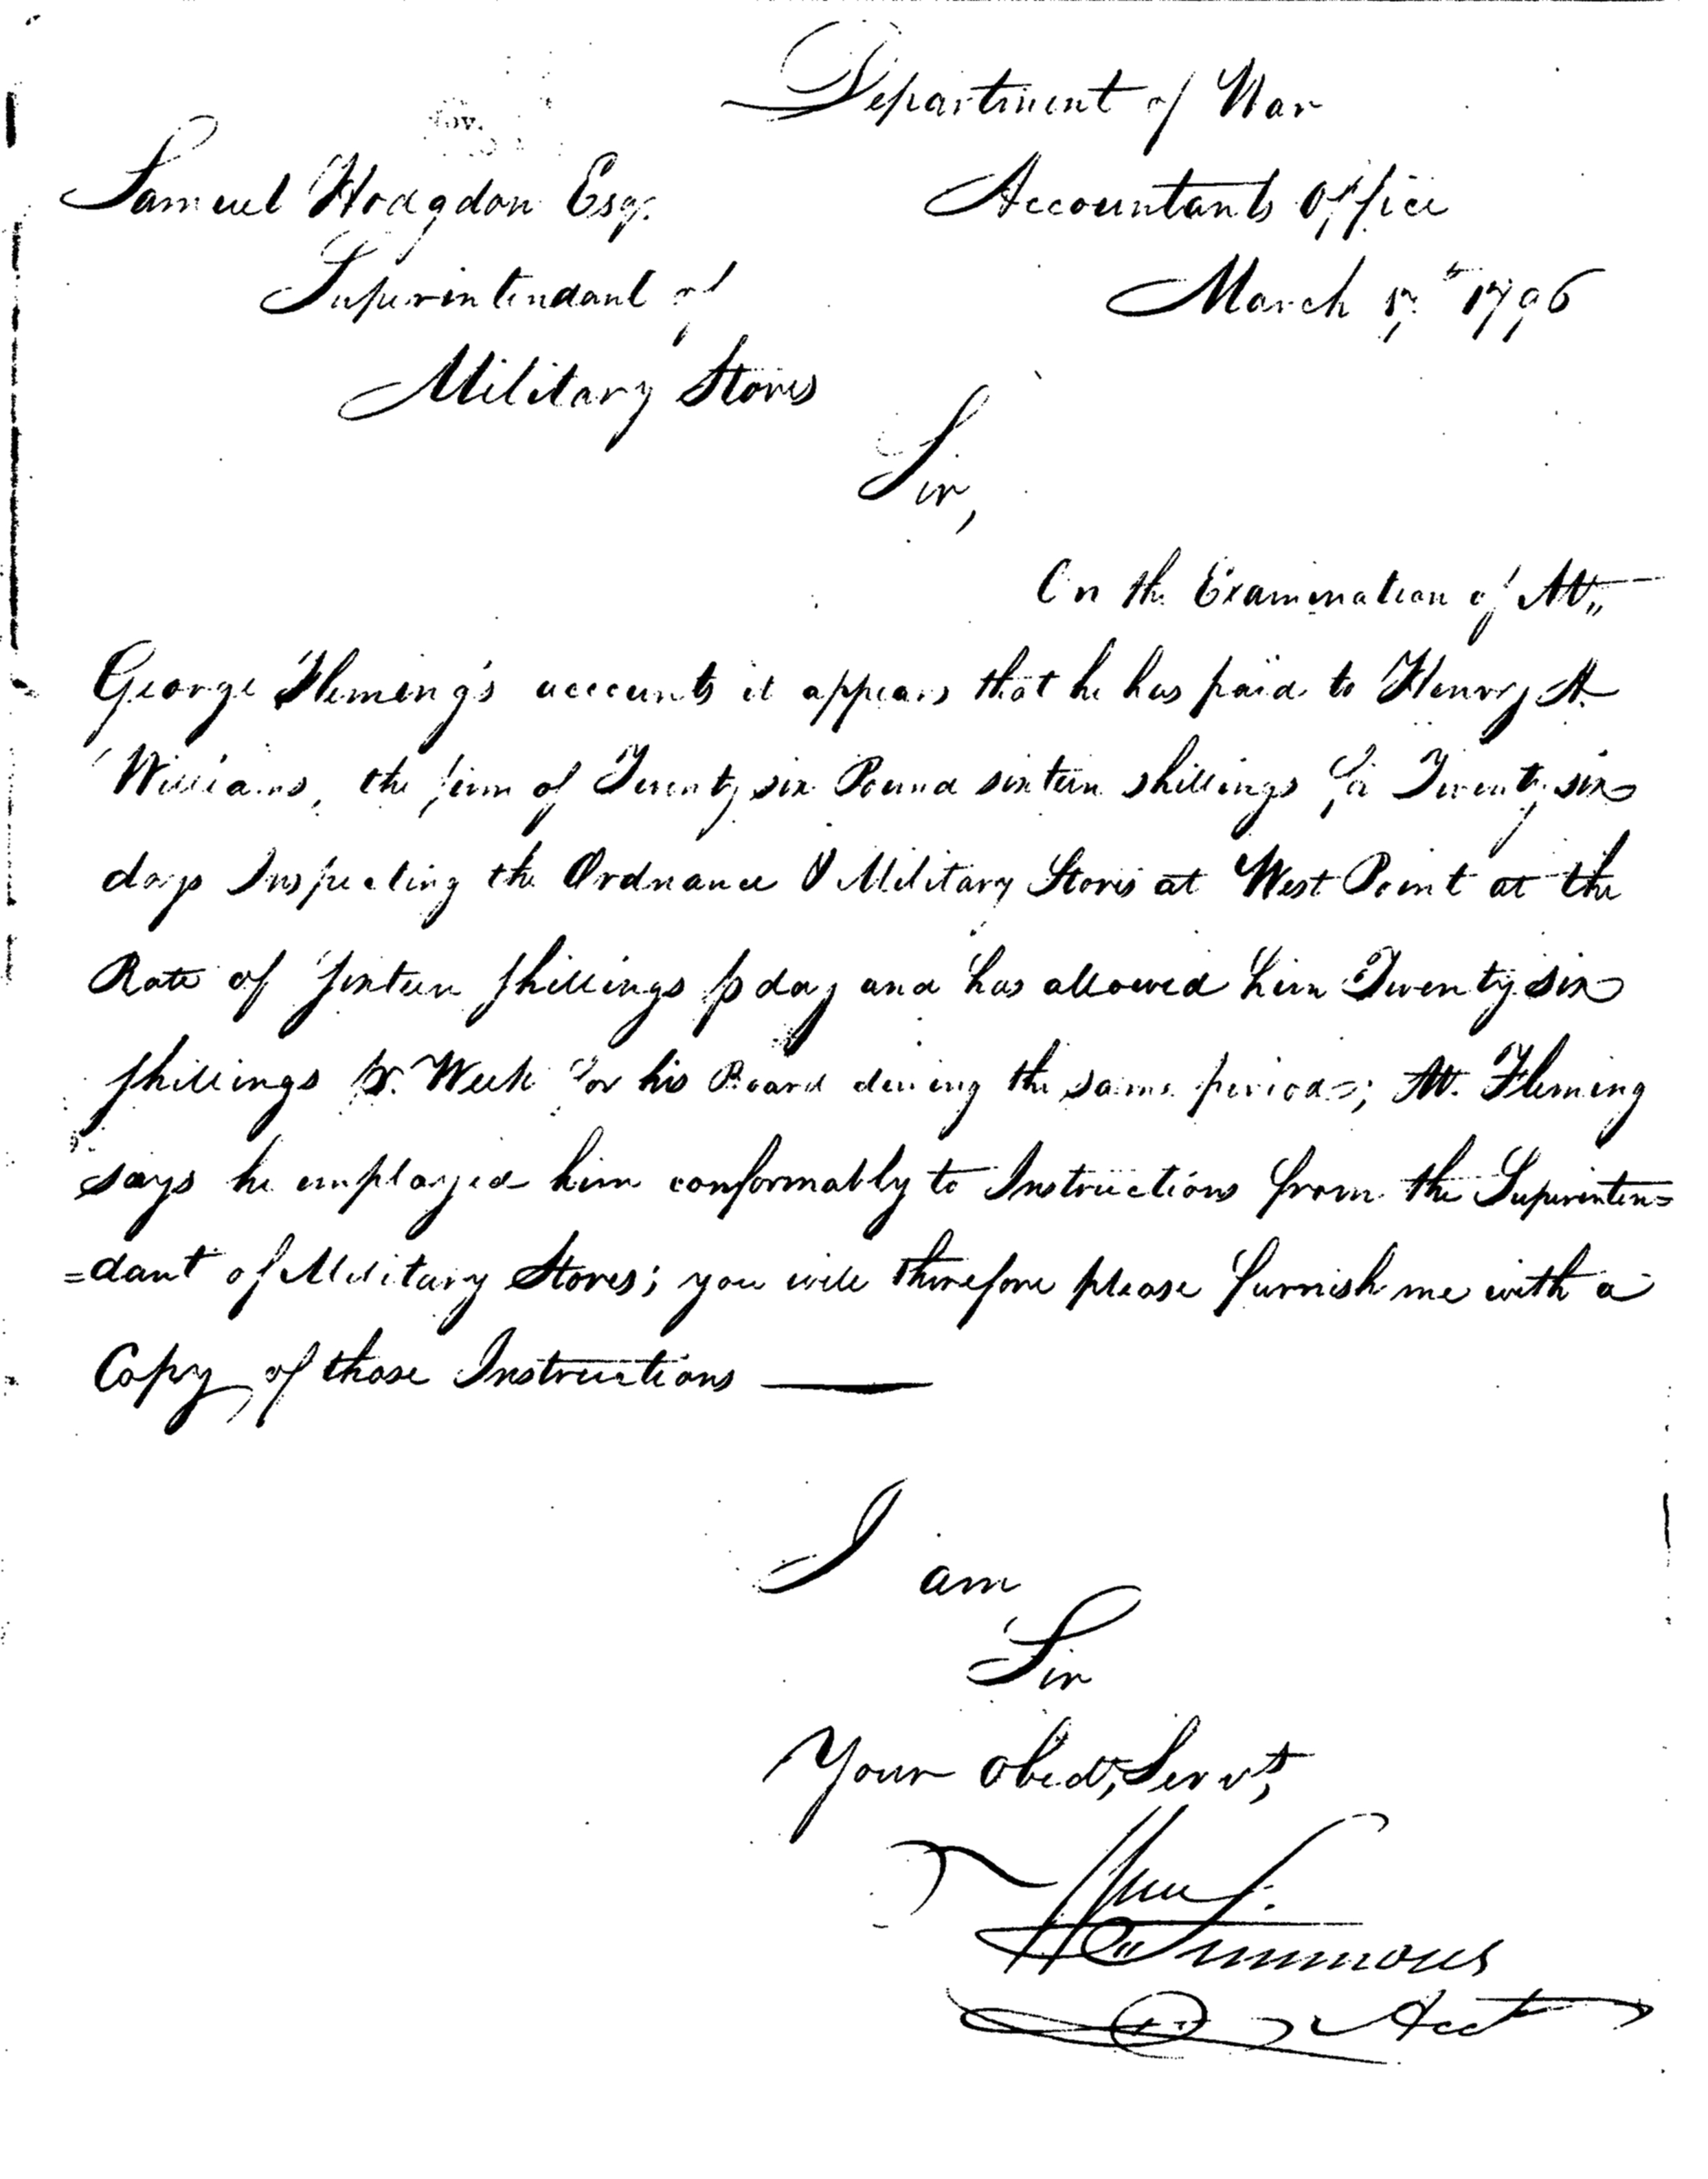 Department of War
Samuel Hodgdon Esqr.
Accountants Office
Superintendant of
March 17th 1796
Military Stores
Sir,
On the Examination of Mr.
George Fleming's accounts it appears that he has paid to Henry A.
Williams, the sum of Twenty six Pound sixteen shillings for Twenty six
days Inspecting the Ordnance & Military Stores at West Point at the
Rate of sixteen shillings p day and has allowed him Twenty six
shillings pr. Week for his Board during the same period=; Mr. Fleming
says he employed him conformably to Instructions from the Superinten=
=dant of Military Stores; you will therefore please furnish me with a
Copy of those Instructions
I am
Sir
Your obedt. Servt,
Wm Simmons
Acct